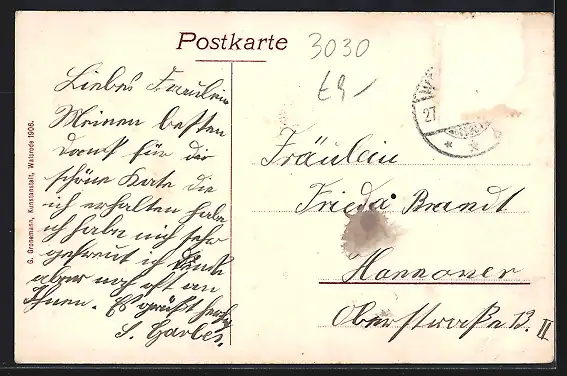 Postkarte
3030
Liebes Fräulein
Meinen besten
Dank für die
schöne Karte die
ich erhalten habe
ich habe mich sehr
gefreut ich denke
aber noch oft an
Ihnen. Es grüßt herzlich
S. Garbes.
G. Grosemann, Kunstanstalt, Walsrode 1908.
27
Fräulein
Frieda Brandt
Hannover
Oberstraße 13. II